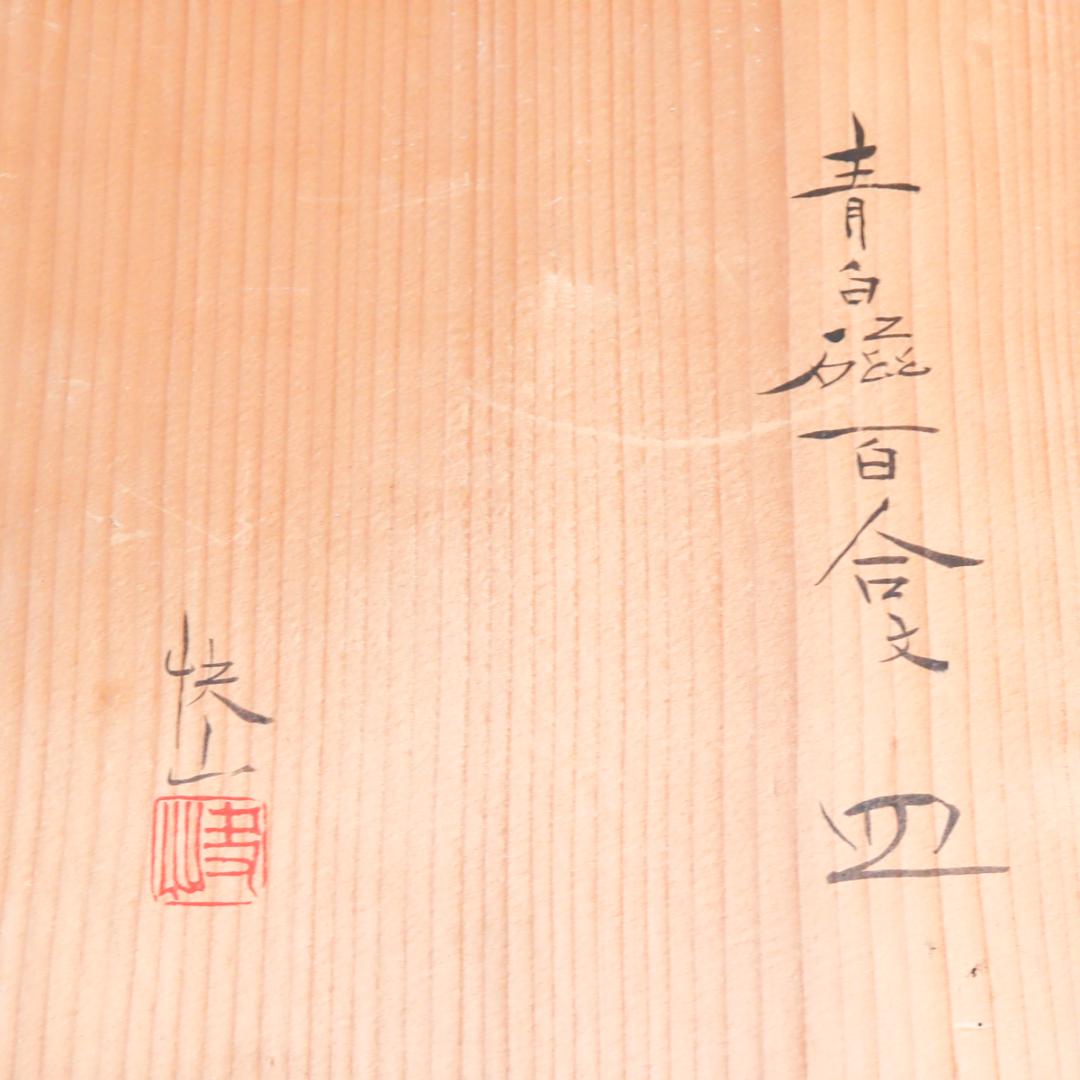 青白磁百合文皿
快山